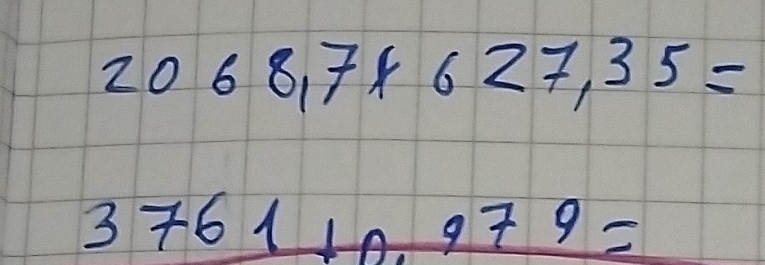 2068,7+627,35=
3761+0,979=